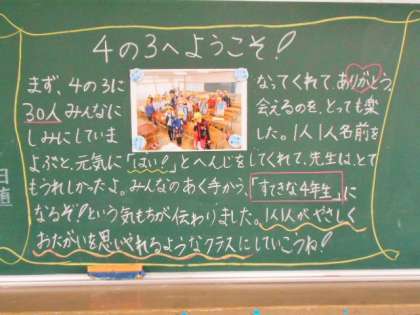 4の3へようこそ!
まず、4の3に なってくれて、ありがとう。
30人みんなに 会えるのを、とっても楽
しみにしていま した。1人1人名前を
よぶと、元気に「はい!」とへんじをしてくれて、先生は、とて
もうれしかったよ。みんなのあく手から、「すてきな4年生」に
なるぞ!という気もちが伝わりました。1人1人がやさしく
おたがいを思いやれるようなクラスにしていこうね!
日
直